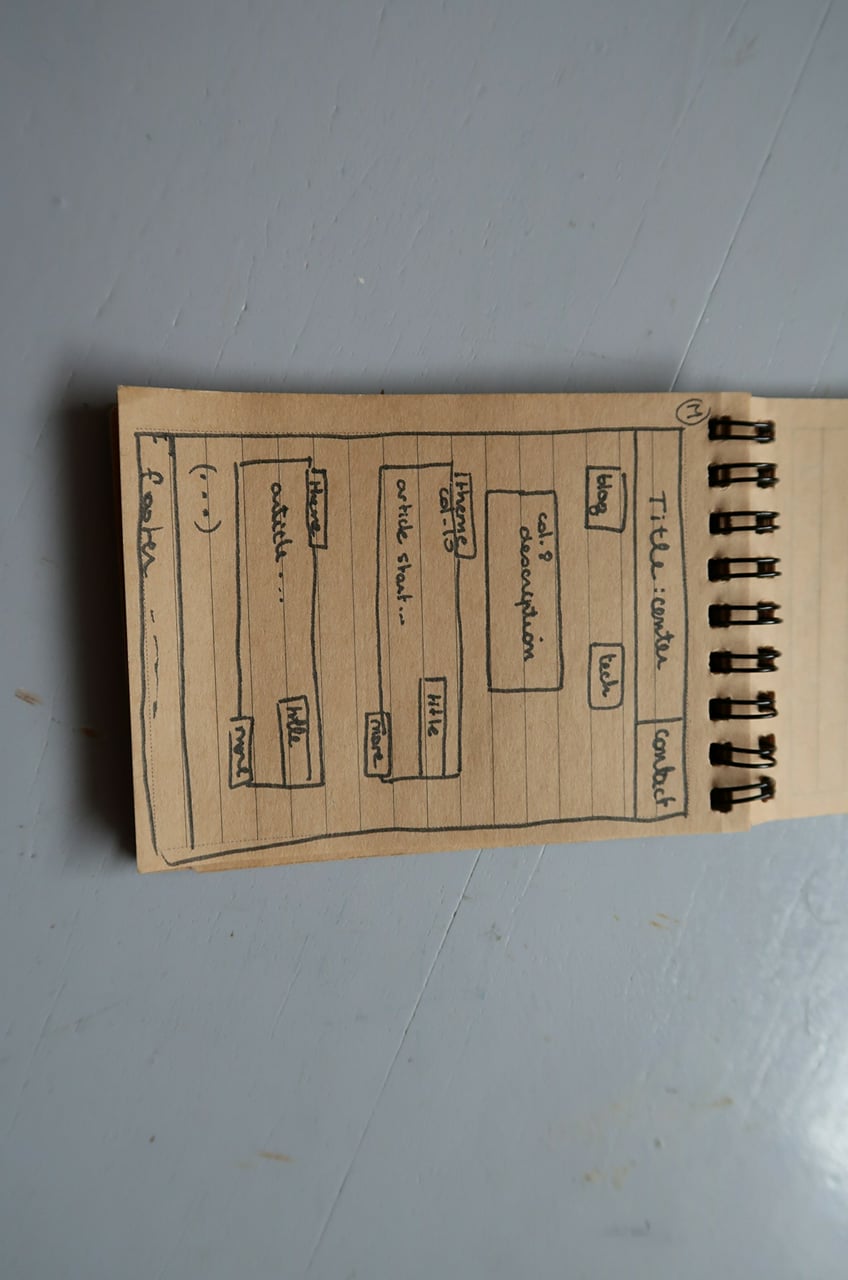 M
Title : center
contact
blog
tech
col. 8
description
theme
col-13
title
article start...
more
theme
title
article...
more
(...)
footer